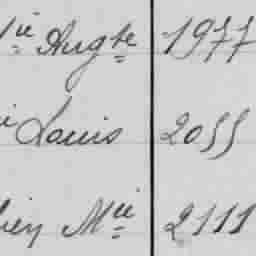 ie Augte 1977
Louis 2055
Mie 2111